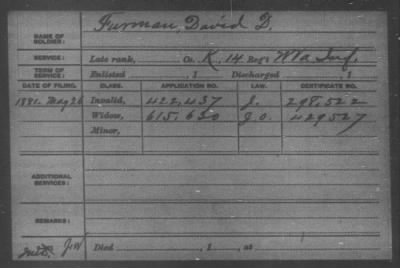 NAME OF SOLDIER: Furman, David D.
SERVICE: Late rank, Co. K, 14 Reg't W Va Inf.
TERM OF SERVICE: Enlisted , 1 Discharged , 1
DATE OF FILING. CLASS. APPLICATION NO. LAW. CERTIFICATE NO.
1881. May 26 Invalid, 422.437 J. 298.522
Widow, 615.630 J.O. 429527
Minor,
ADDITIONAL SERVICES:
REMARKS:
Died , 1 , at